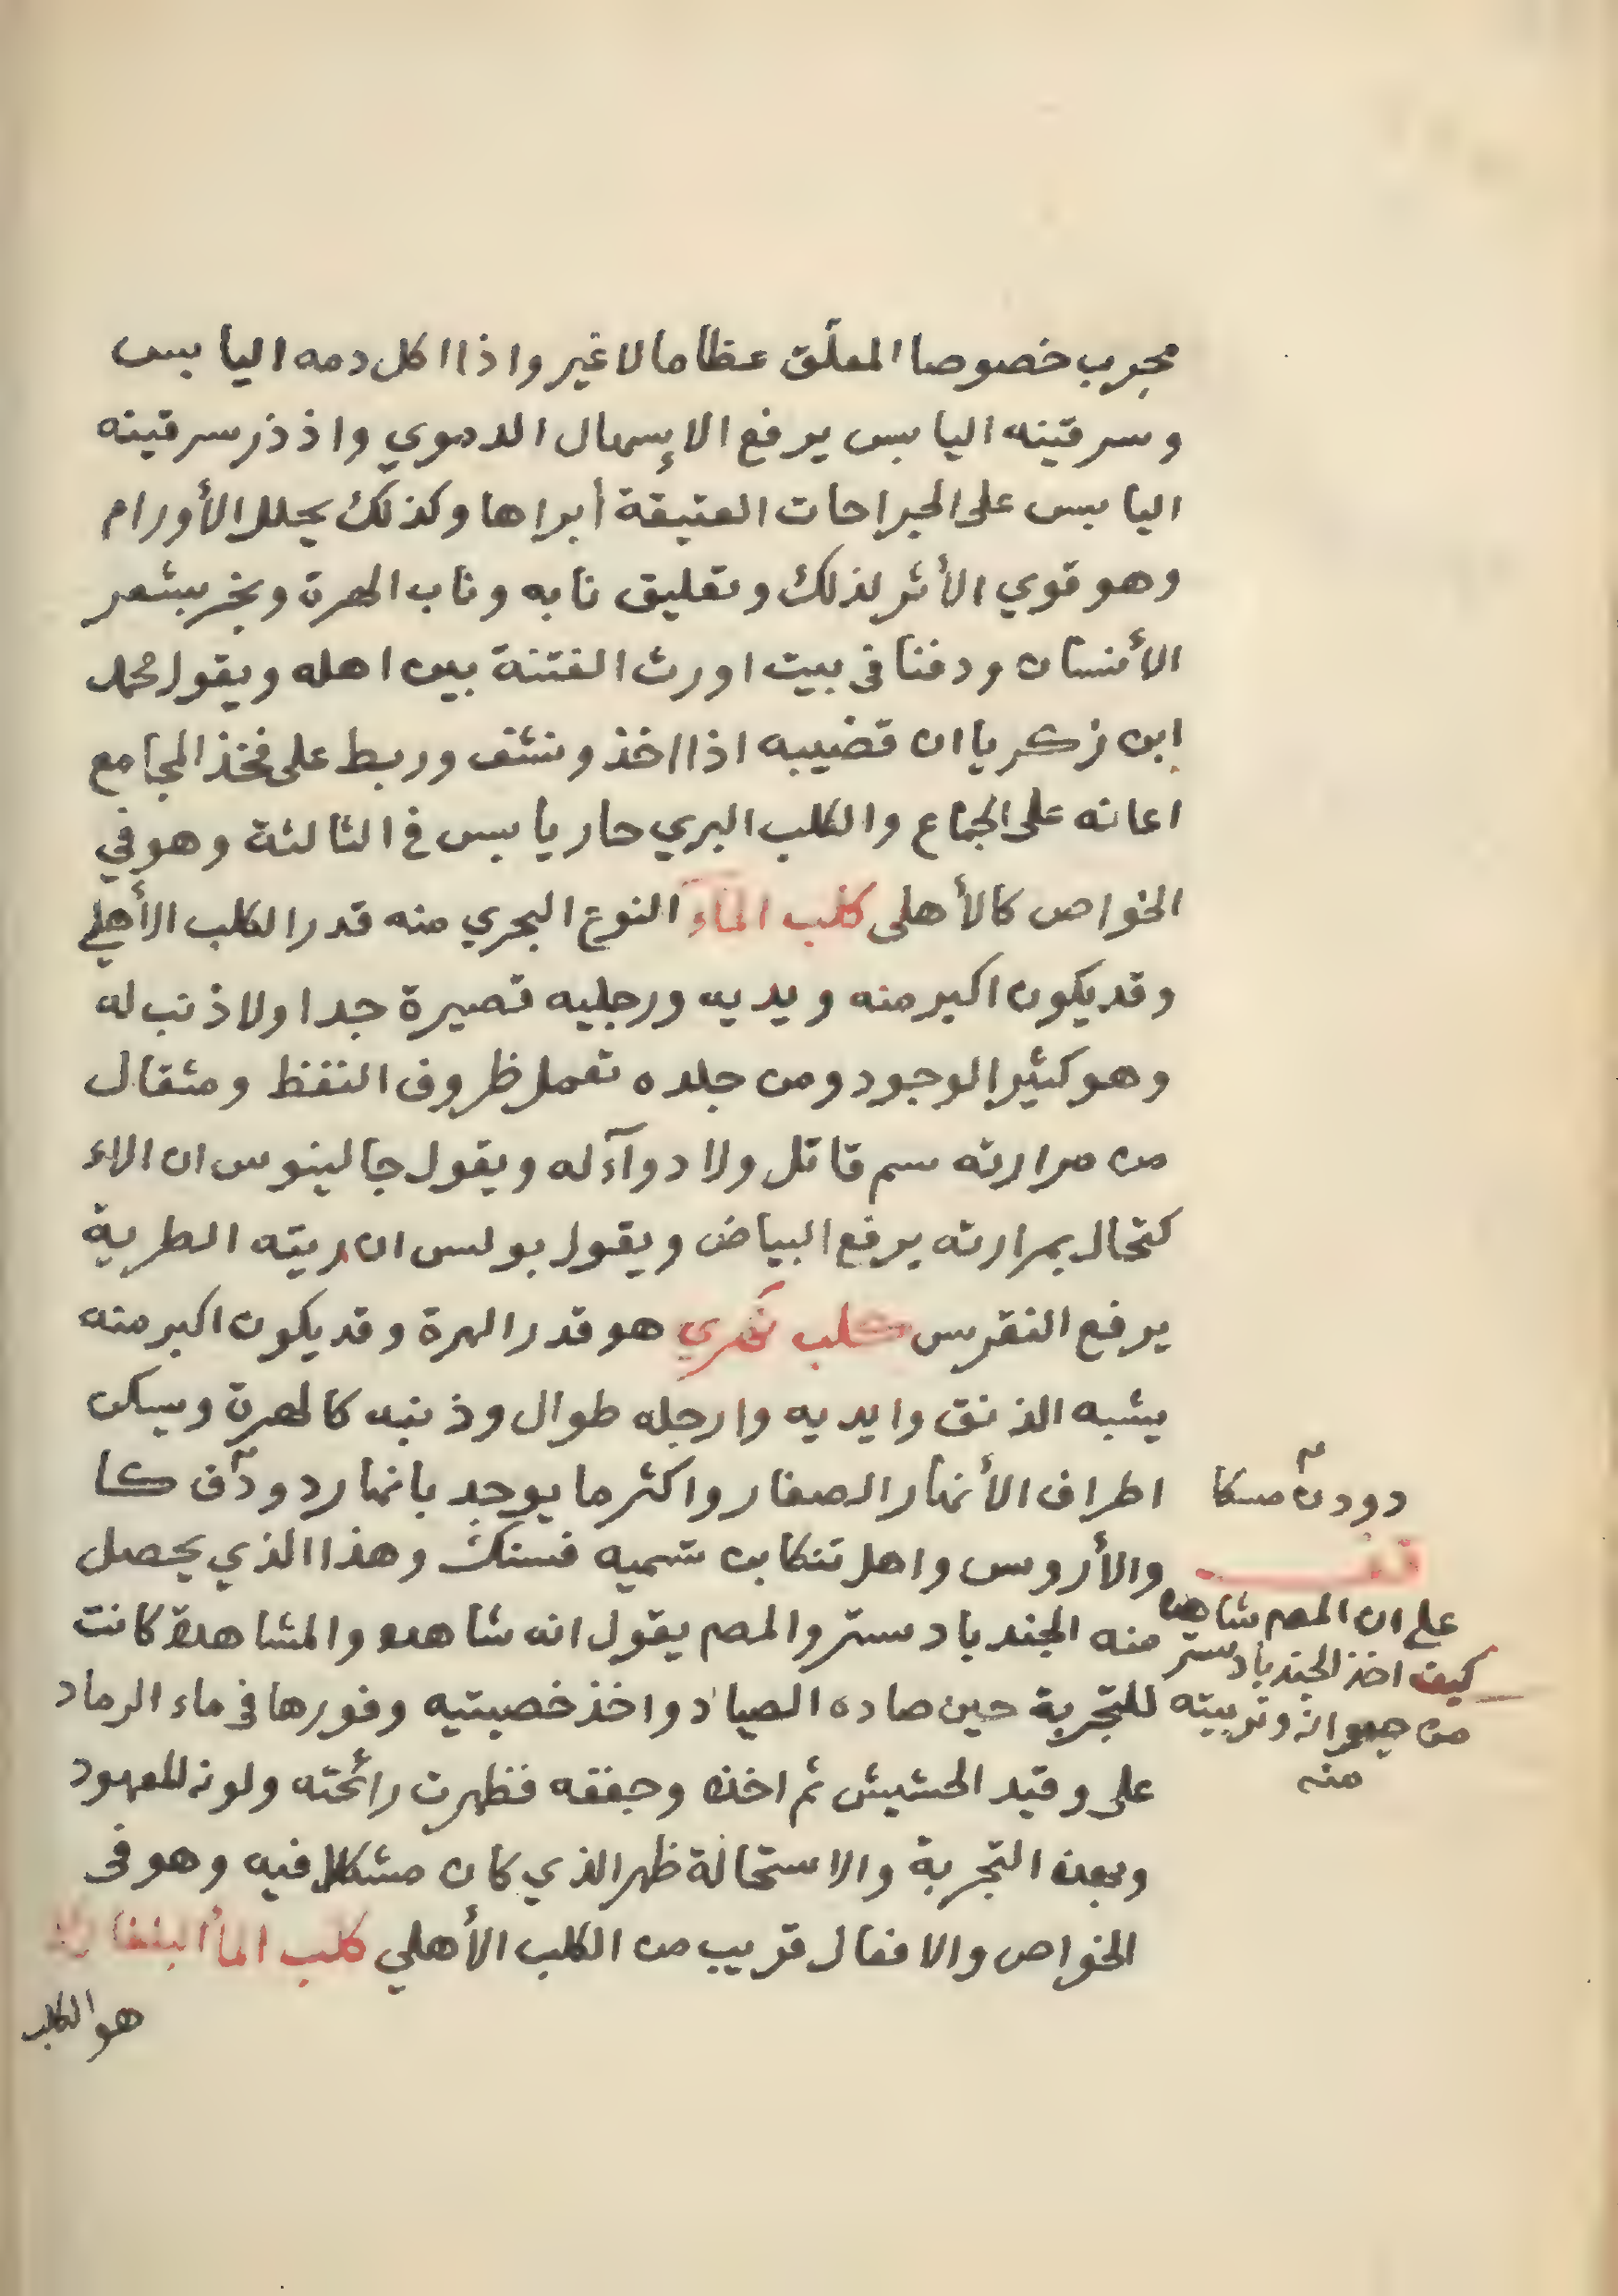 مجرب خصوصا المعلّق عظاما لا غير واذا اكل دمه اليابس
وسرقينه اليابس يرفع الإسهال الدموي واذ ذر سرقينه
اليابس على الجراحات العتيقة أبراها وكذلك يحلل الأورام
وهو قوي الأثر لذلك وتعليق نابه وناب الهرة وبخر بشعر
الأنسان ودفنا في بيت اورث الفتنة بين اهله ويقول محمد
ابن زكريا ان قضيبه اذا اخذ ونشف وربط على فخذ المجامع
اعانه على الجماع والكلب البري حار يابس في الثالثة وهو في
الخواص كالأهلى كلب المآء النوع البحري منه قدر الكلب الأهلي
وقد يكون اكبر منه ويديه ورجليه قصيرة جدا ولا ذنب له
وهو كثير الوجود ومن جلده تعمل ظروف النفط ومثقال
من مرارته سم قاتل ولا دوآء له ويقول جالينوس ان الاء
كتحال بمرارته يرفع البياض ويقول بولس ان ريته الطرية
يرفع النقرس كلب نهري هو قدر الهرة وقد يكون اكبر منه
يشبه الذنق وايديه وارجله طوال وذنبه كالهرة ويسكن
اطراف الأنهار الصغار واكثر ما يوجد بانهار دودآن كا
والأروس واهل تنكابن تسميه فسنك وهذا الذي يحصل
منه الجندبادستر والمصم يقول انه شاهده والمشاهدة كانت
للتجربة حين صاده الصياد واخذ خصيتيه وفورها في ماء الرماد
على وقيد الحشيش ثم اخذه وجففه فظهرت رائحته ولونه للمعهود
وبعد التجربة والاستحالة ظهر الذي كان مشكلا فيه وهو في
الخواص والافعال قريب من الكلب الأهلي كلب المأ
هو الكلب
دودن مسكا
على ان المصم شاهد
كيف اخذ الجندبادستر
من حيوانه وتربيته
منه